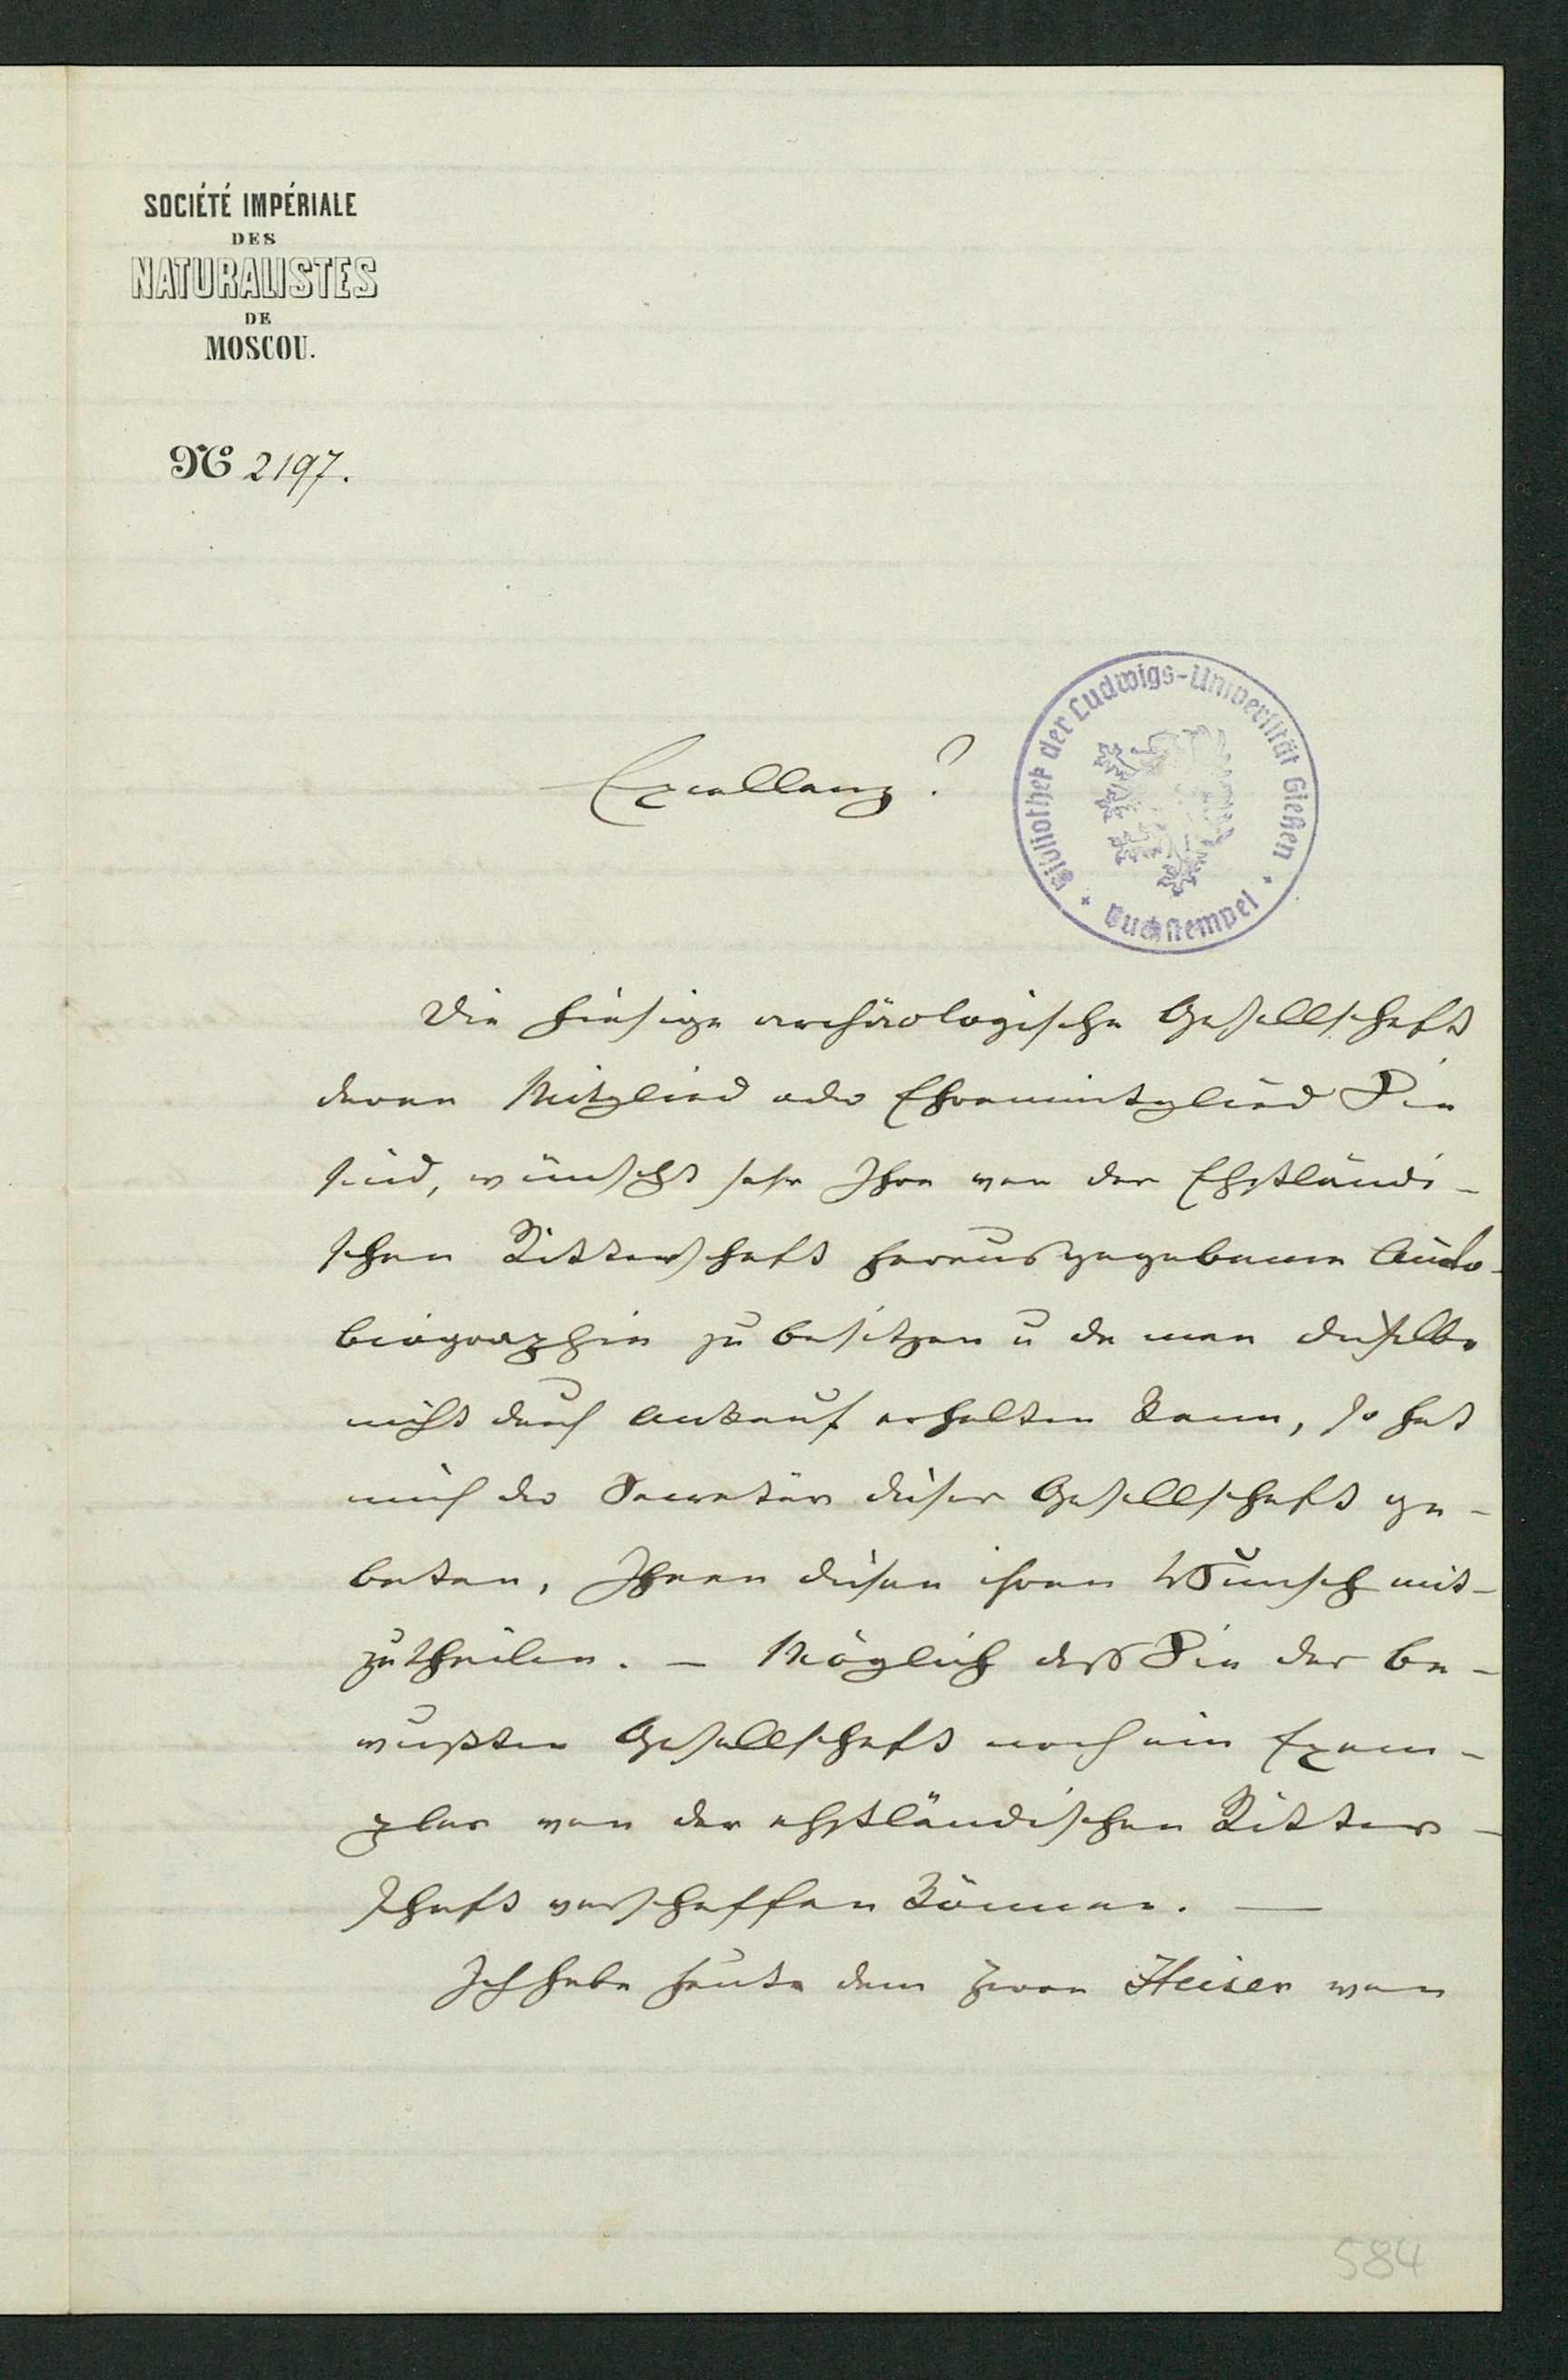 SOCIÉTÉ IMPÉRIALE
DES
NATURALISTES
DE
MOSCOU.
№ 2197.
Excellenz!
Bibliothek der Ludwigs-Universität Gießen
Buchstempel
Die hiesige archäologische Gesellschaft
deren Mitglied oder Ehrenmitglied Sie
sind, wünscht sehr Ihre von der Ehstländi-
schen Ritterschaft herausgegebene Auto-
biographie zu besitzen u da man dieselbe
nicht durch Ankauf erhalten kann, so hat
mich der Secretär dieser Gesellschaft ge-
beten, Ihnen diesen ihren Wunsch mit-
zutheilen. — Möglich daß Sie der be-
wußten Gesellschaft noch ein Exem-
plar von der ehstländischen Ritter-
schaft verschaffen können. —
Ich habe heute dem Herrn Heiser von
584